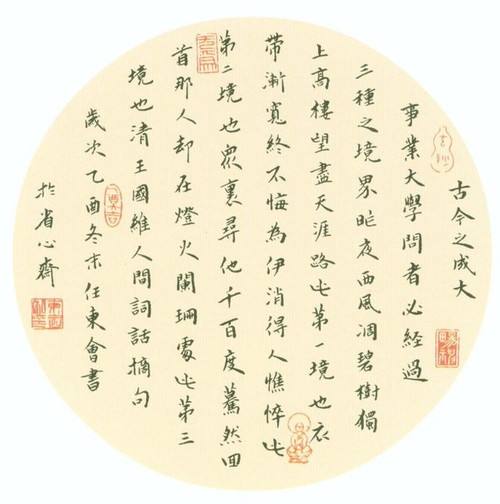 古今之成大
事業大學問者必經過
三種之境界昨夜西風凋碧樹獨
上高樓望盡天涯路此第一境也衣
帶漸寬終不悔為伊消得人憔悴此
第二境也眾裏尋他千百度驀然回
首那人却在燈火闌珊處此第三
境也清王國維人間詞話摘句
歲次乙酉冬末任東會書
於省心齋